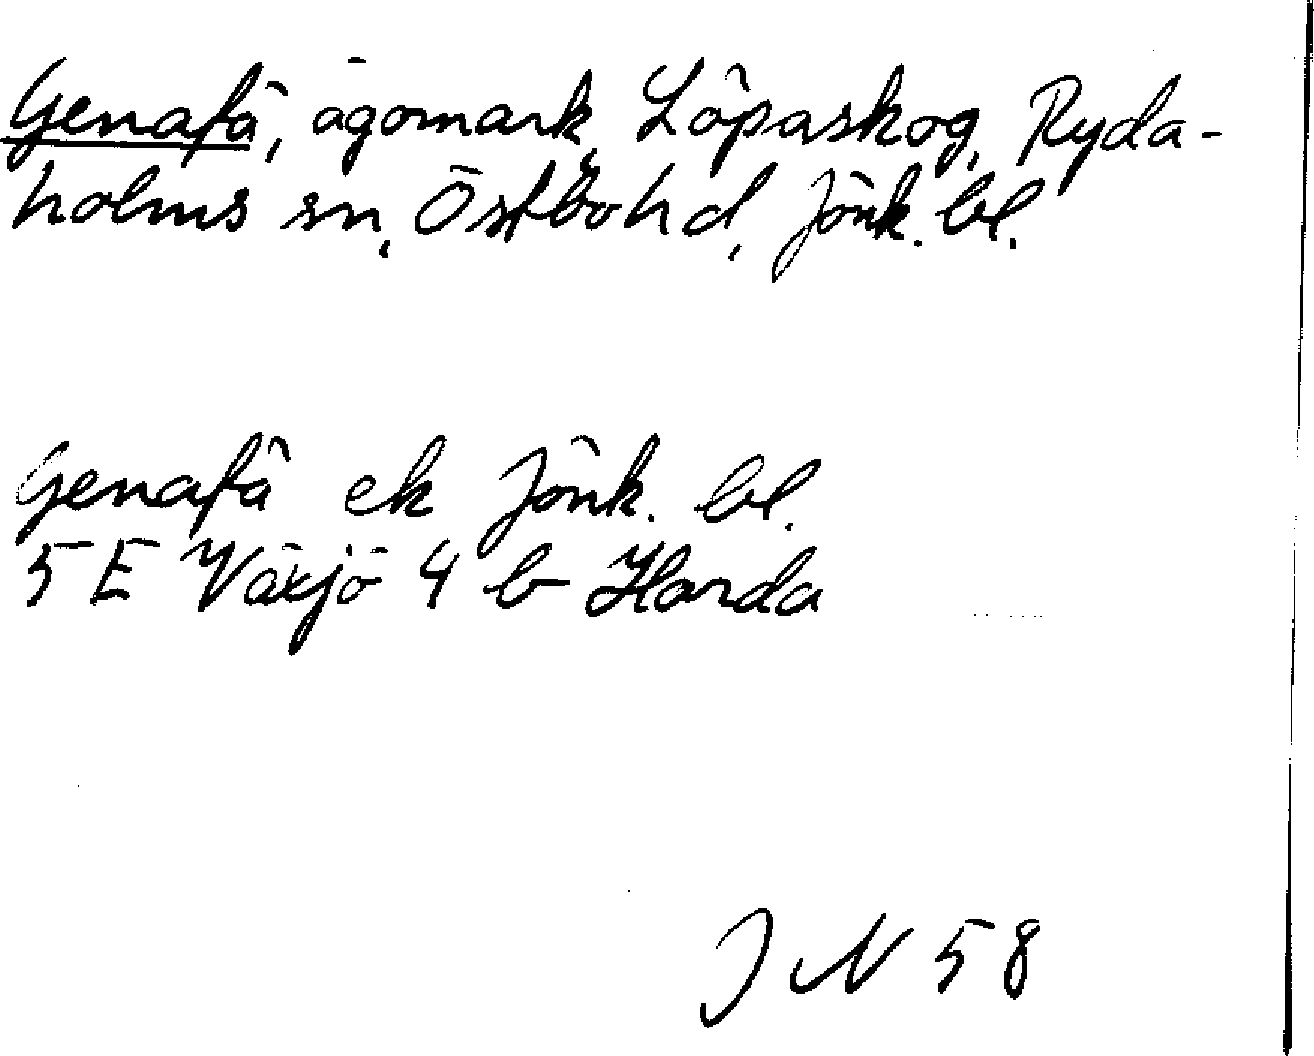 Genafå, ägomark, Löpaskog, Ryda-
holms sn, Östbo hd, Jönk. bl.
Genafå ek Jönk. bl.
5 E Växjö 4 b Horda
J N 58